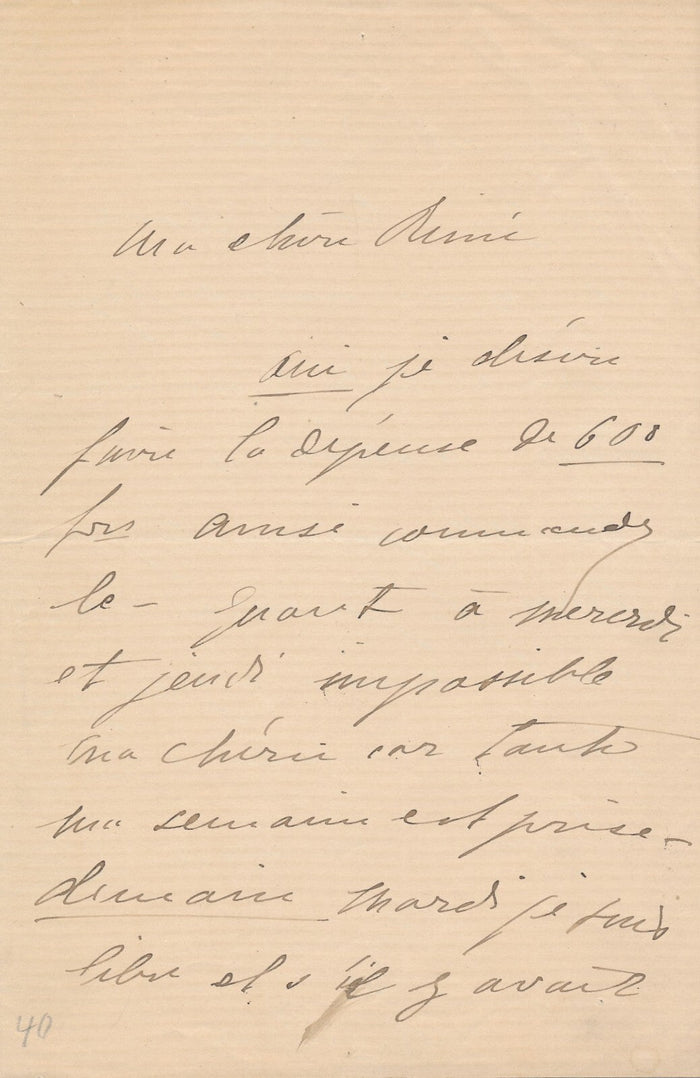 Ma chère Renée
Oui je désire
faire la dépense de 600
frs ainsi commandez
le - quant à mercredi
et jeudi impossible
ma chérie car toute
ma semaine est prise -
demain mardi je suis
libre et s'il y avait
40